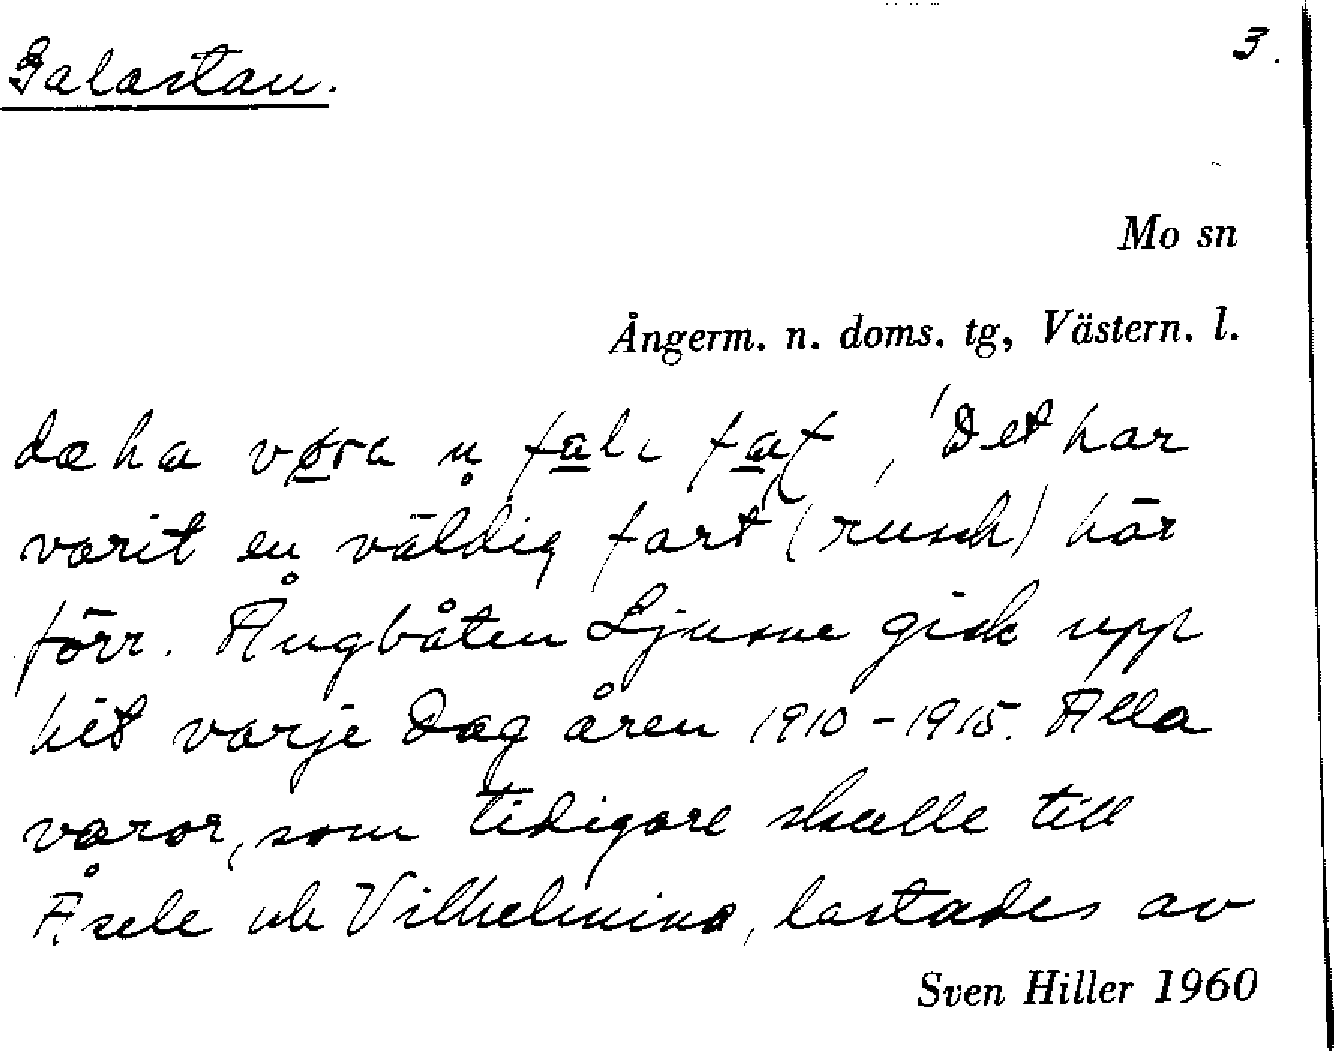 3.
Galastan.
Mo sn
Ångerm. n. doms. tg, Västern. l.
dæ ha 'Det har
varit en väldig fart (rusch) här
förr. Ångbåten Ljusne gick upp
hit varje dag åren 1910-1915. Alla
varor, som tidigare skulle till
Åsele och Vilhelmina, lastades av
Sven Hiller 1960